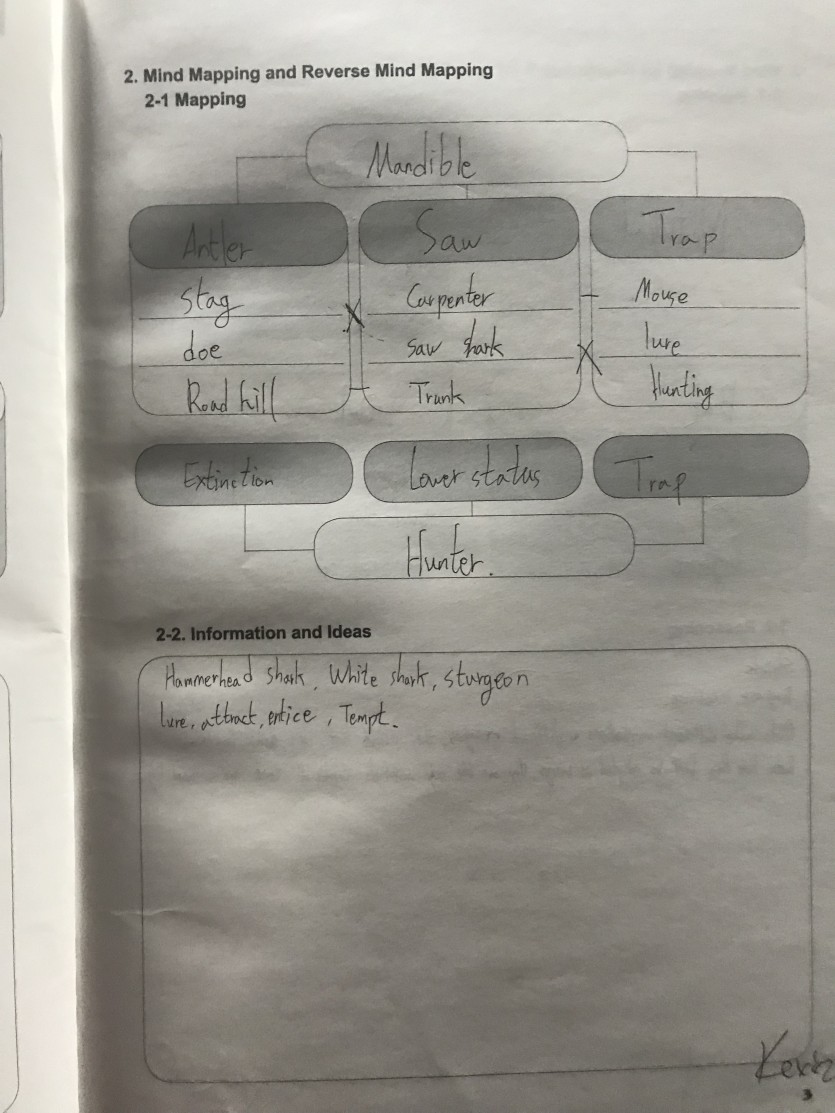 2. Mind Mapping and Reverse Mind Mapping
2-1 Mapping
Mandible
Antler Saw Trap
stag Carpenter Mouse
doe saw shark lure
Road kill Trunk Hunting
Extinction Lower status Trap
Hunter.
2-2. Information and Ideas
Hammerhead shark, White shark, sturgeon
lure, attract, entice, Tempt.
Kevin
3